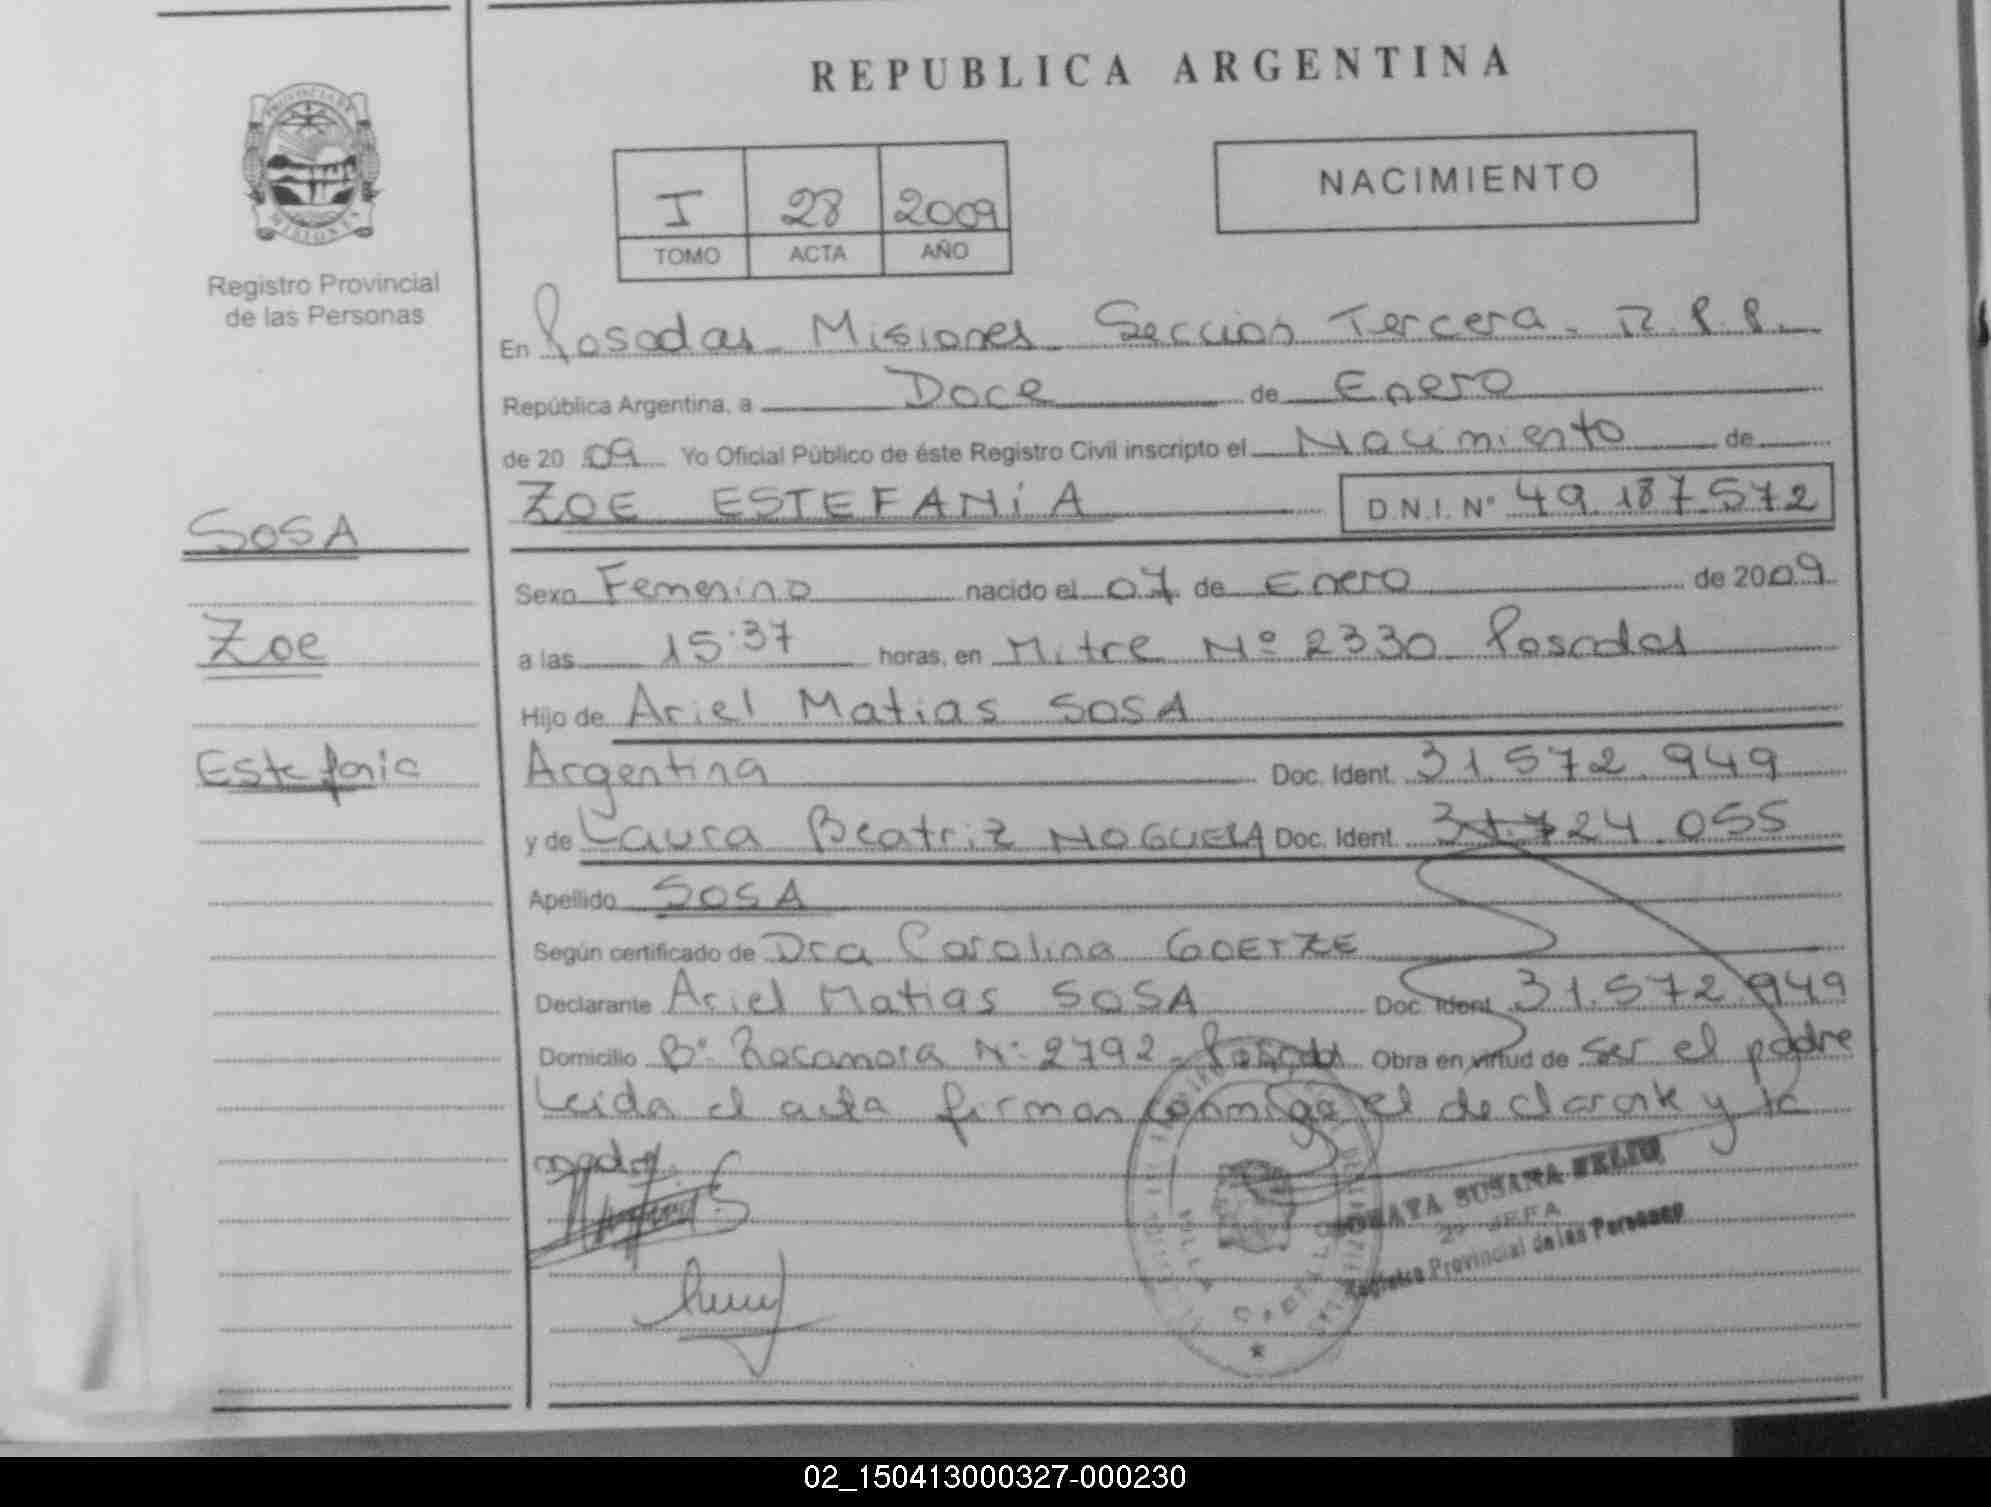 REPUBLICA ARGENTINA
PROVINCIA DE
MISIONES
Registro Provincial
de las Personas
I 28 2009
TOMO ACTA AÑO
NACIMIENTO
En Posadas Misiones Seccion Tercera. R.P.P.
República Argentina, a Doce de Enero
de 2009 Yo Oficial Público de éste Registro Civil inscripto el Nacimiento de
ZOE ESTEFANÍA D.N.I. Nº 49.187.572
SOSA
Zoe
Estefania
Sexo Femenino nacido el 07 de Enero de 2009
a las 15:37 horas, en Mitre Nº 2330 Posadas
Hijo de Ariel Matias SOSA
Argentina Doc. Ident. 31.572.949
y de Laura Beatriz NOGUERA Doc. Ident. 31.724.055
Apellido SOSA
Según certificado de Dra Carolina GOETZE
Declarante Ariel Matias SOSA Doc. Ident. 31.572.949
Domicilio Bº Rocamora Nº 2792 Posadas Obra en virtud de ser el padre
Leida el acta firman conmigo el declarante y la
madre.
SUSANA
2º JEFA
Registro Provincial de las Personas
02_150413000327-000230